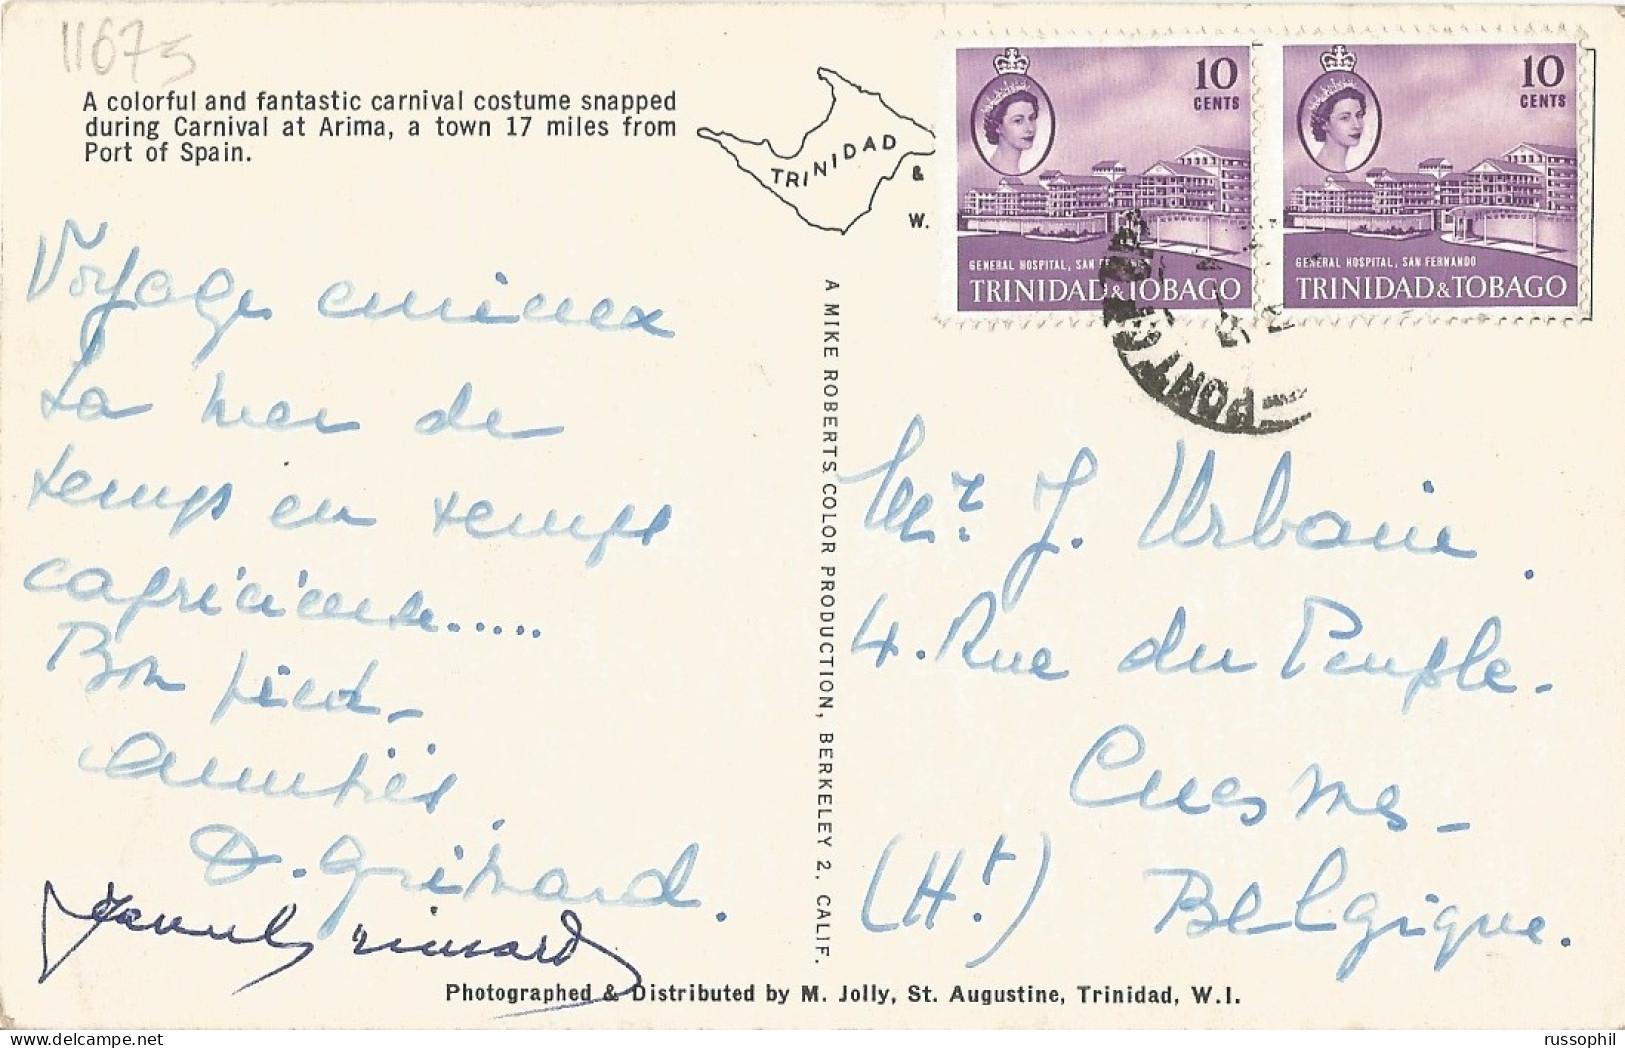 11675
A colorful and fantastic carnival costume snapped
during Carnival at Arima, a town 17 miles from
Port of Spain.
TRINIDAD
&
W.
10
CENTS
GENERAL HOSPITAL, SAN FERNANDO
TRINIDAD & TOBAGO
10
CENTS
GENERAL HOSPITAL, SAN FERNANDO
TRINIDAD & TOBAGO
PORT
Voyage curieux
La mer de
temps en temps
capricieuse.....
Bon pied.
Amitiés.
A MIKE ROBERTS COLOR PRODUCTION, BERKELEY 2, CALIF.
Mr. J. Urbain.
4. Rue du Peuple.
Cuesmes-
(Ht.) Belgique.
Photographed & Distributed by M. Jolly, St. Augustine, Trinidad, W.I.
russophil